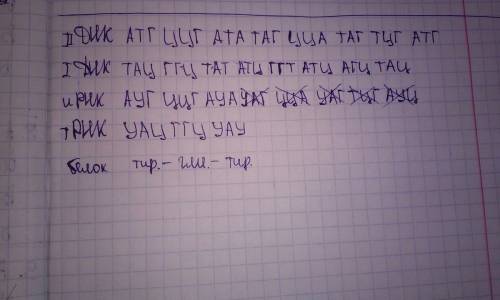 II ДНК АТГ ЦЦГ АТА ТАГ ЦЦА ТАГ ТЦГ АТГ
I ДНК ТАЦ ГГЦ ТАТ АТЦ ГГТ АТЦ АГЦ ТАЦ
иРНК АУГ ЦЦГ АУА УАГ ЦЦА УАГ ТЦГ АУЦ
тРНК УАЦ ГГЦ УАУ
белок тир.- гли.- тир.